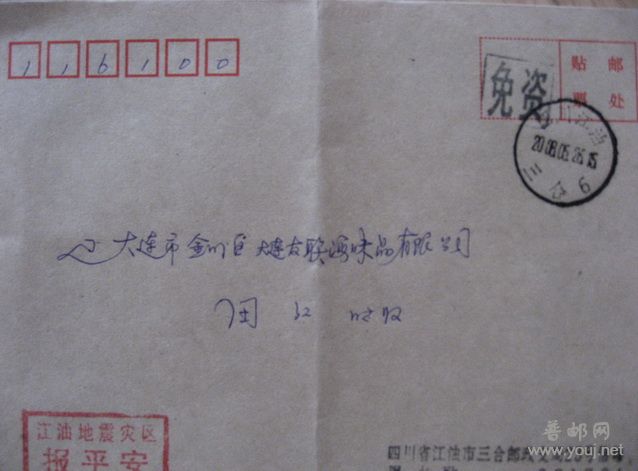 116100
免资
贴邮
票处
四川江油
2008.05.26.15
三合
辽大连市金州区大连友联海味品有限公司
收
江油地震灾区
报平安
四川省江油市三合邮政
普邮网
www.youj.net